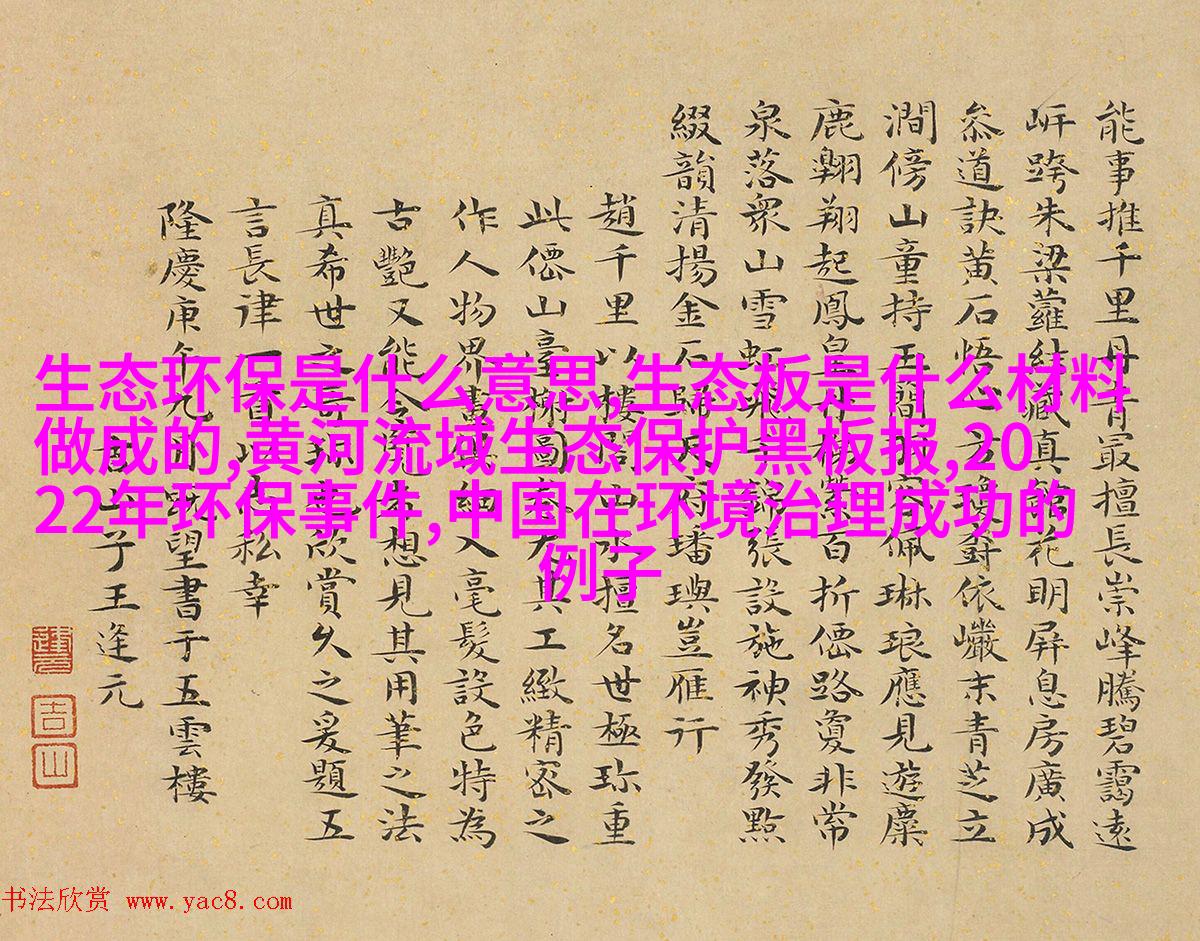 能事推千里丹青最擅長崇峰騰碧靄遠
岍跨朱梁蘿結藏真館花明屏息房廣成
叅道訣黃石悟方瓊依巘末青芝立
澗傍山童持玉佩琳琅應見遊麋
鹿翱翔起鳳皇紫百折僊路夐非常
泉落衆山雪虹飛千錦張設施神秀發點
綴韻清揚金石歸天府璠璵豈雁行
趙千里以樓閣擅名世極珎重
此僊山臺榭圖具工緻精密之
作人物界畫入毫髮設色特為
古艷又能令想見其用筆之法
真希世之欣賞久之爰題五
言長律一首私幸
隆慶庚午九月既望書于五雲樓
子王逢元
生态环保是什么意思,生态板是什么材料
做成的,黄河流域生态保护黑板报,20
22年环保事件,中国在环境治理成功的
例子
书法欣赏 www.yac8.com